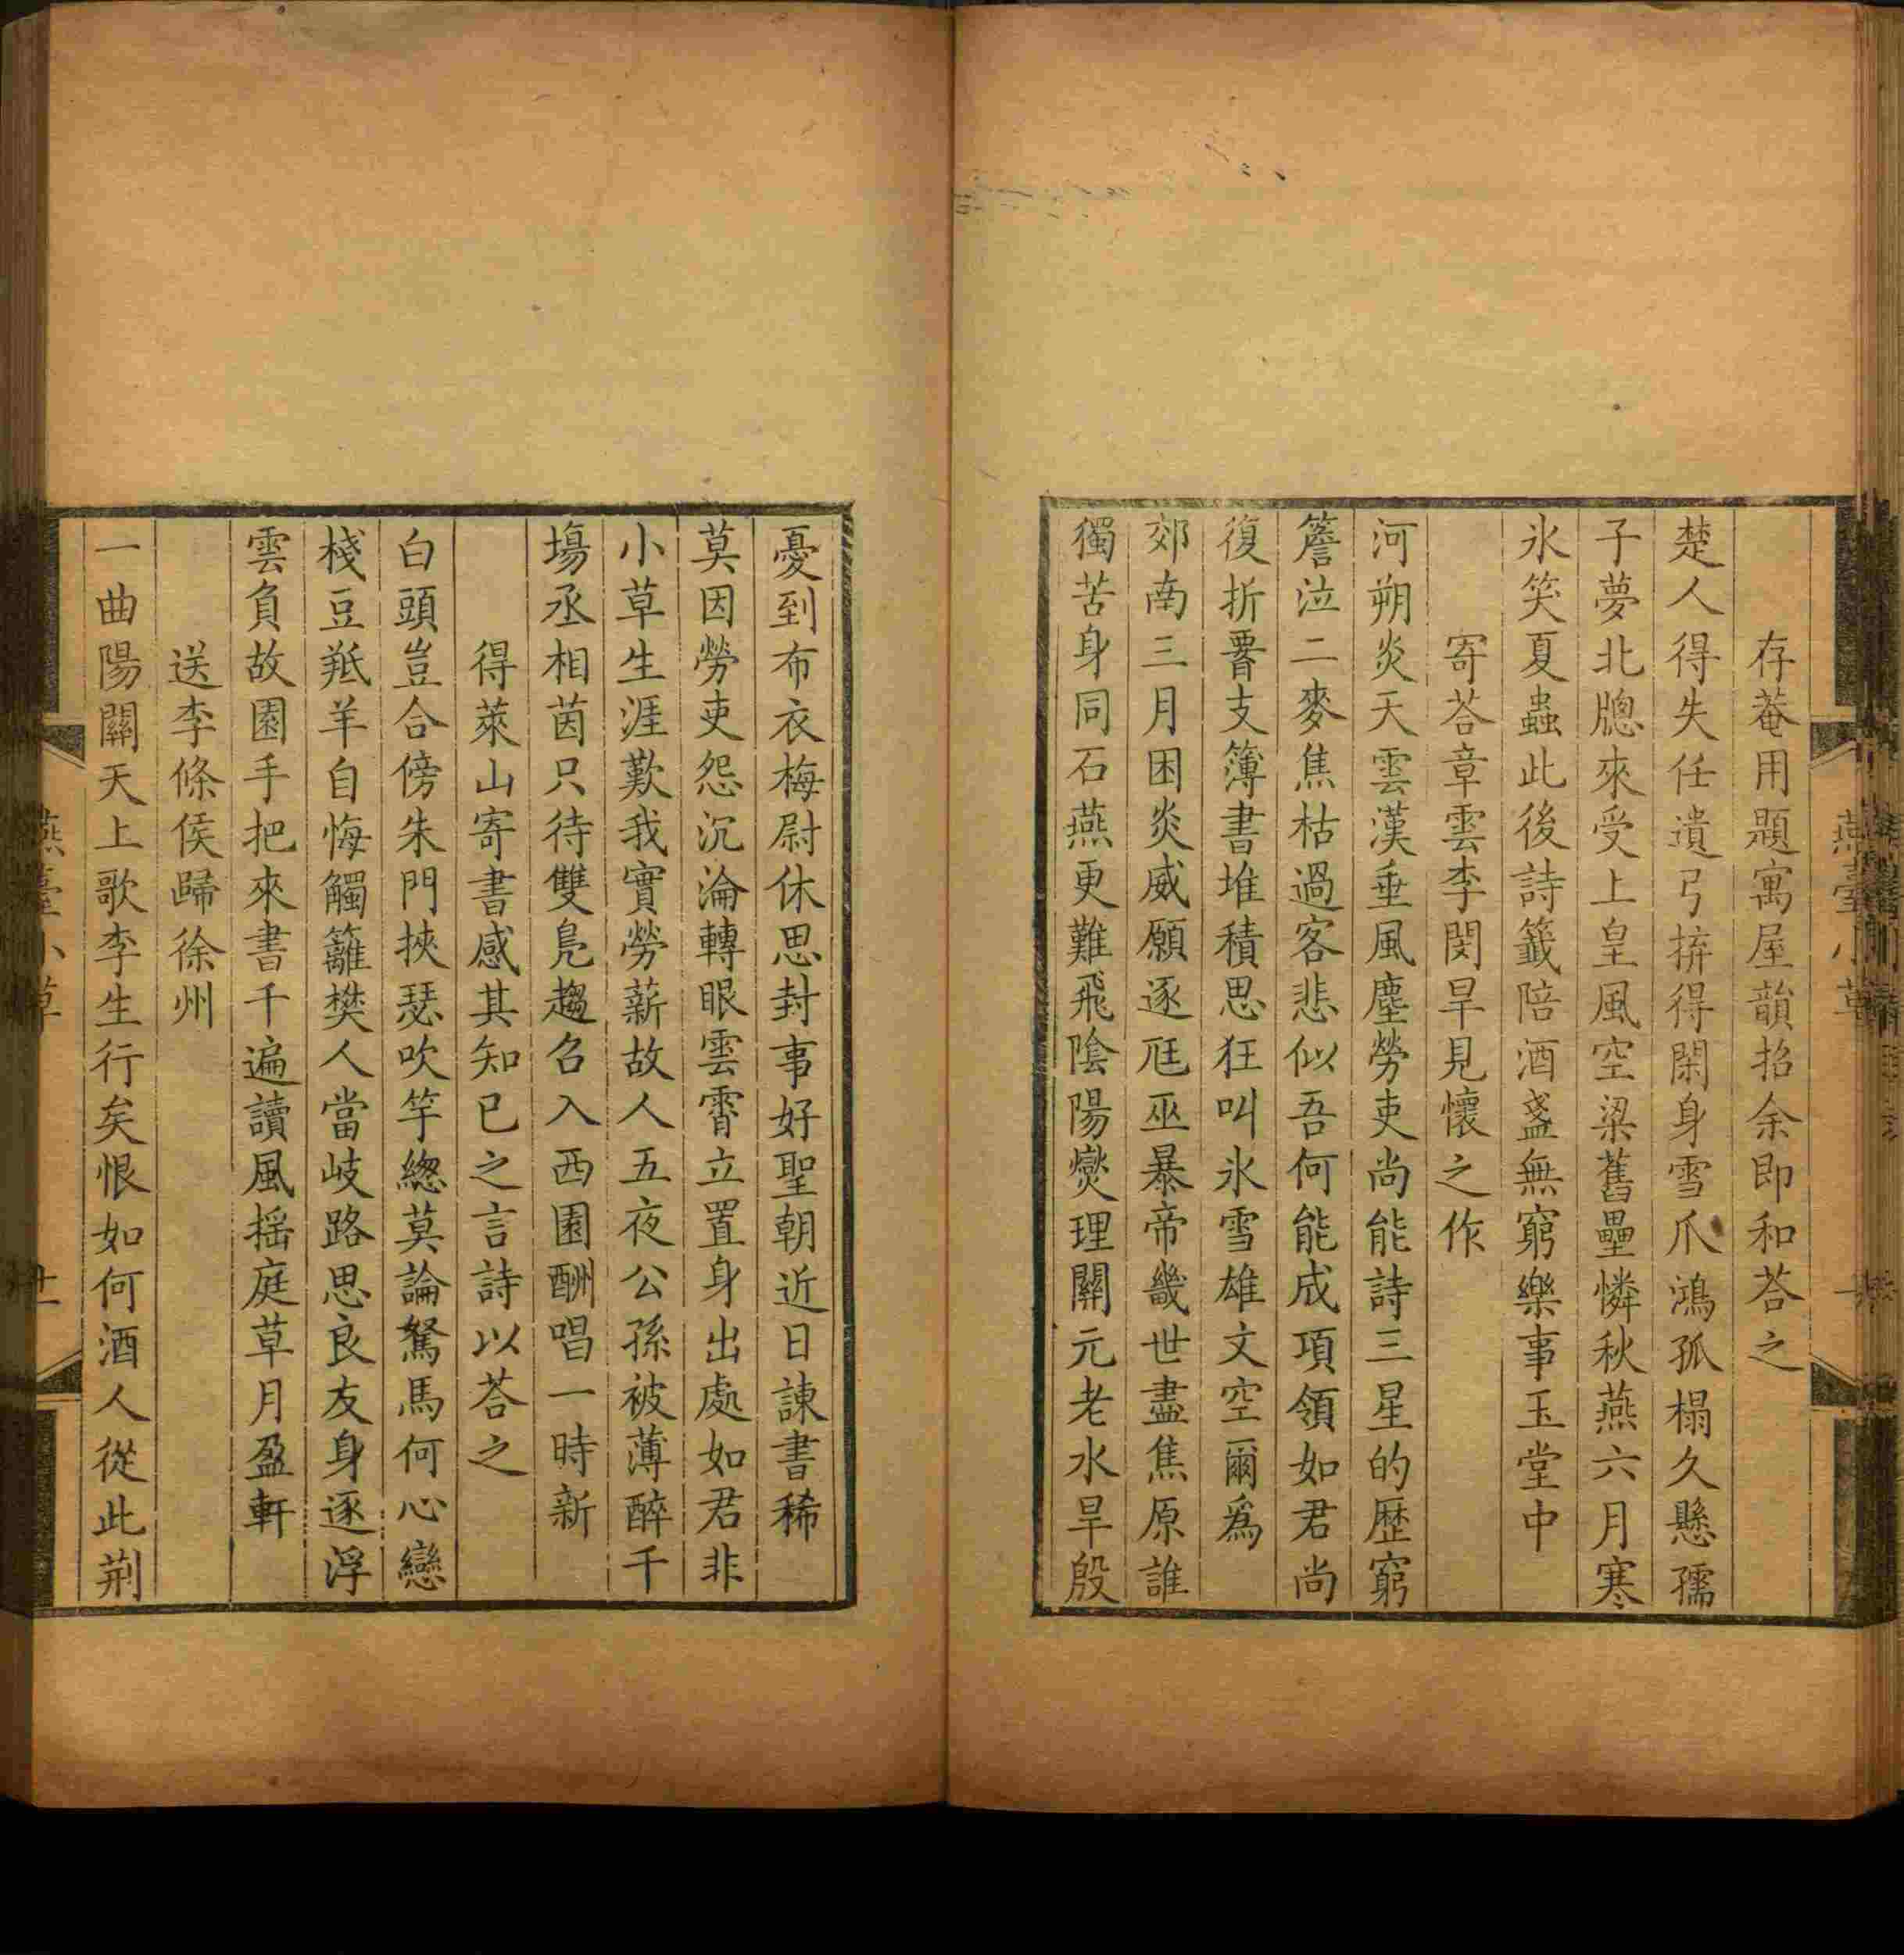 存菴用題寓屋韻招余即和荅之
楚人得失任遺弓拚得閑身雪爪鴻孤榻久懸孺
子夢北牕來受上皇風空梁舊壘憐秋燕六月寒
氷笑夏蟲此後詩籤陪酒盞無窮樂事玉堂中
寄荅章雲李閔旱見懷之作
河朔炎天雲漢垂風塵勞吏尚能詩三星的歷窮
簷泣二麥焦枯過客悲似吾何能成項領如君尚
復折要支簿書堆積思狂叫氷雪雄文空爾為
郊南三月困炎威願逐尫巫暴帝畿世盡焦原誰
獨苦身同石燕更難飛陰陽爕理關元老水旱殷
憂到布衣梅尉休思封事好聖朝近日諫書稀
莫因勞吏怨沉淪轉眼雲霄立置身出處如君非
小草生涯歎我實勞薪故人五夜公孫被薄醉千
塲丞相茵只待雙鳧趨召入西園酬唱一時新
得萊山寄書感其知已之言詩以荅之
白頭豈合傍朱門挾瑟吹竽緫莫論駑馬何心戀
棧豆羝羊自悔觸籬樊人當岐路思良友身逐浮
雲負故園手把來書千遍讀風揺庭草月盈軒
送李條侯歸徐州
一曲陽關天上歌李生行矣恨如何酒人從此荆
燕臺小草